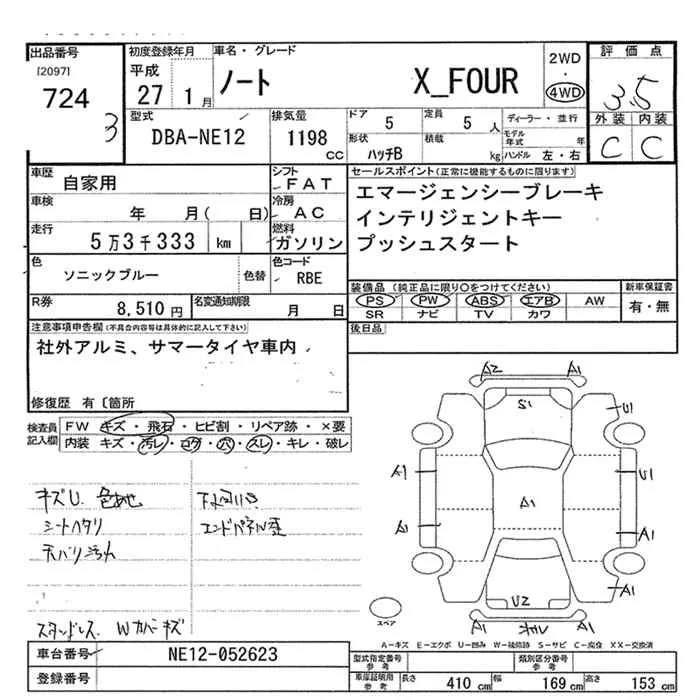 出品番号 初度登録年月 車名・グレード 評価点
[2097] 平成 ノート X_FOUR 2WD
724 27 1月 4WD 3.5
3 型式 排気量 ドア 5 定員 5 人 ディーラー・並行 外装 内装
DBA-NE12 1198 cc 形状 ハッチB 積載 kg モデル年式 年 C C
ハンドル 左・右
車歴 自家用 シフト FAT セールスポイント(正常に機能するものに限ります)
車検 年 月( 日) 冷房 AC エマージェンシーブレーキ
走行 5万3千333 km 燃料 ガソリン インテリジェントキー
プッシュスタート
色 ソニックブルー 色替 色コード RBE
装備品(純正品に限り○をつけてください) 新車保証書
R券 8,510円 名変通知期限 月 日 PS PW ABS エアB AW 有・無
SR ナビ TV カワ
注意事項申告欄(不具合内容等は具体的に記入して下さい) 後日品
社外アルミ、サマータイヤ車内
修復歴 有〔箇所
検査員記入欄 FW キズ・飛石・ヒビ割・リペア跡・×要
内装 キズ・汚レ・コゲ・穴・スレ・キレ・破レ
A2 A1
S1 U1
A1 U1
A1
A1 A1
A1
U2
A1 A1
スペア
キズU
シートヘタリ エンドパネル歪
Wカバーキズ
A-キズ E-エクボ U-凹み W-補修跡 S-サビ C-腐食 XX-交換済
車台番号 NE12-052623 型式指定番号 参考 類別区分番号 参考
登録番号 車庫証明用 参考 長さ 410 cm 幅 169 cm 高さ 153 cm